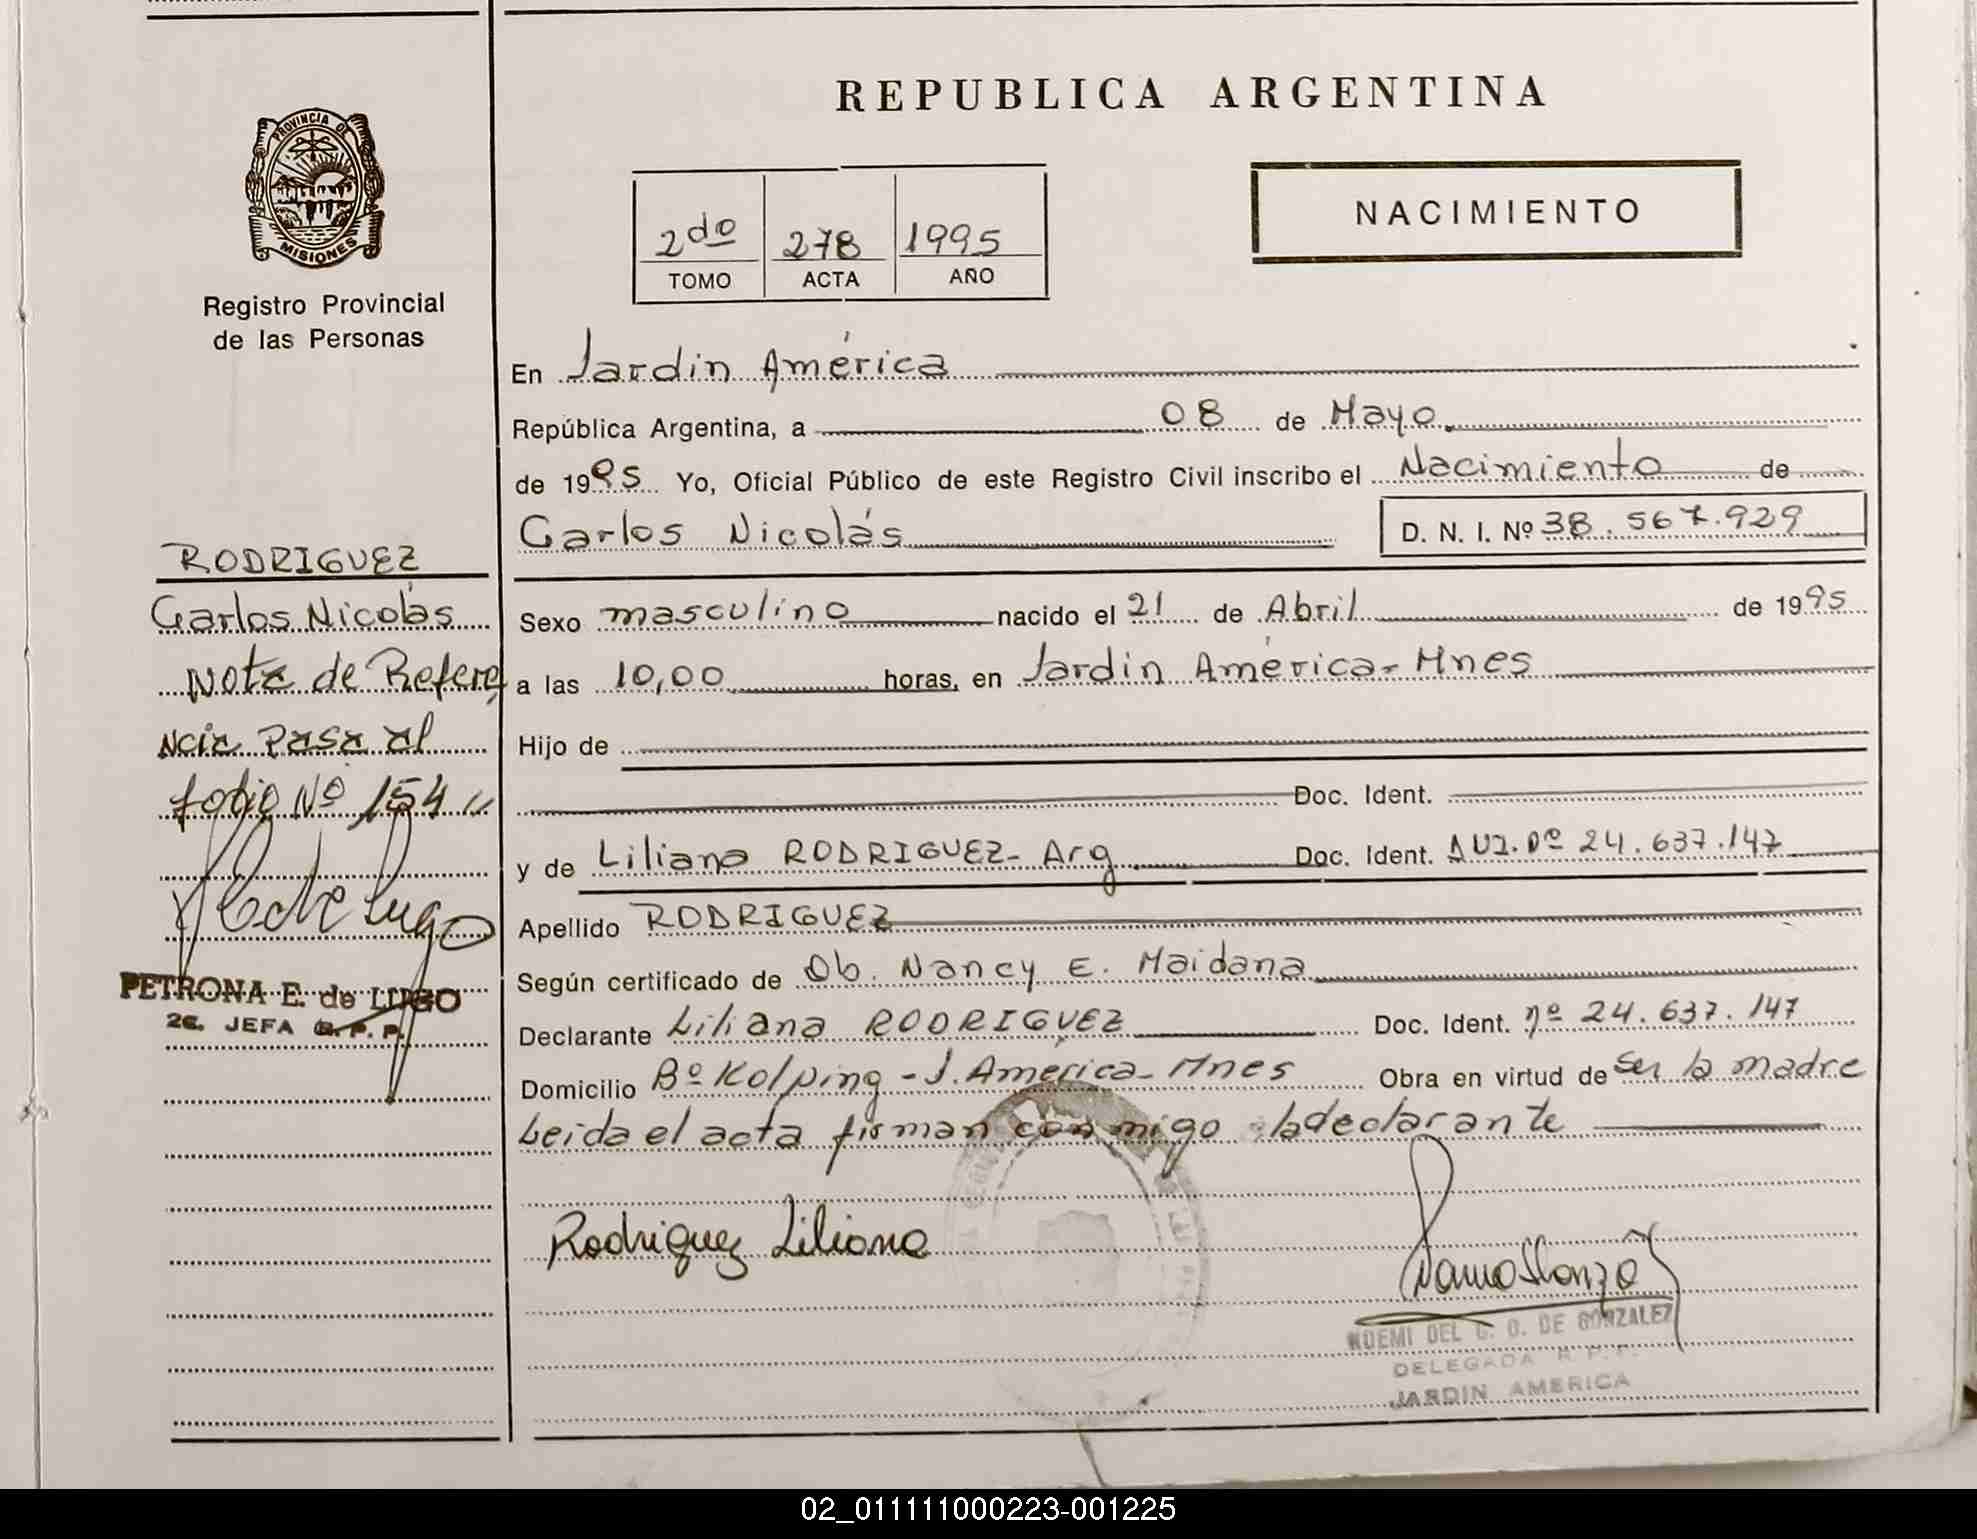 REPUBLICA ARGENTINA
PROVINCIA DE
MISIONES
Registro Provincial
de las Personas
NACIMIENTO
2do 278 1995
TOMO ACTA AÑO
En Jardin América
República Argentina, a 08 de Mayo.
de 1995 Yo, Oficial Público de este Registro Civil inscribo el Nacimiento de
Carlos Nicolás D. N. I. Nº 38.567.929
Sexo masculino nacido el 21 de Abril de 1995
a las 10,00 horas, en Jardin América - Mnes
Hijo de
Doc. Ident.
y de Liliana RODRIGUEZ - Arg Doc. Ident. Nº 24.637.147
Apellido RODRIGUEZ
Según certificado de Ob. Nancy E. Maidana
Declarante Liliana RODRIGUEZ Doc. Ident. nº 24.637.147
Domicilio Bº Kolping - J. América - Mnes Obra en virtud de ser la madre
Leida el acta firman conmigo la declarante
Rodriguez Liliana
NOEMI DEL C. O. DE GONZALEZ
DELEGADA R. P. P.
JARDIN AMERICA
RODRIGUEZ
Carlos Nicolás
Nota de Refere
ncia pasa al
folio Nº 154
PETRONA E. de LUGO
2a. JEFA R. P. P.
02_011111000223-001225